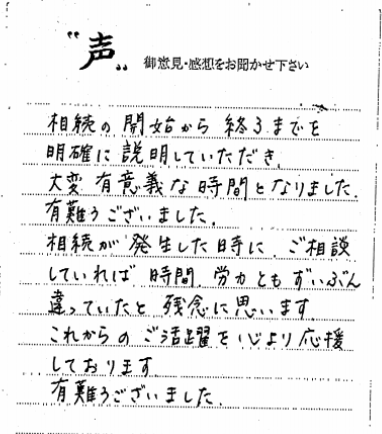 “声„
御意見・感想をお聞かせ下さい
相続の開始から終るまでを
明確に説明していただき、
大変有意義な時間となりました。
有難うございました。
相続が発生した時に、ご相談
していれば時間、労力ともずいぶん
違っていたと、残念に思います。
これからのご活躍を心より応援
しております。
有難うございました。